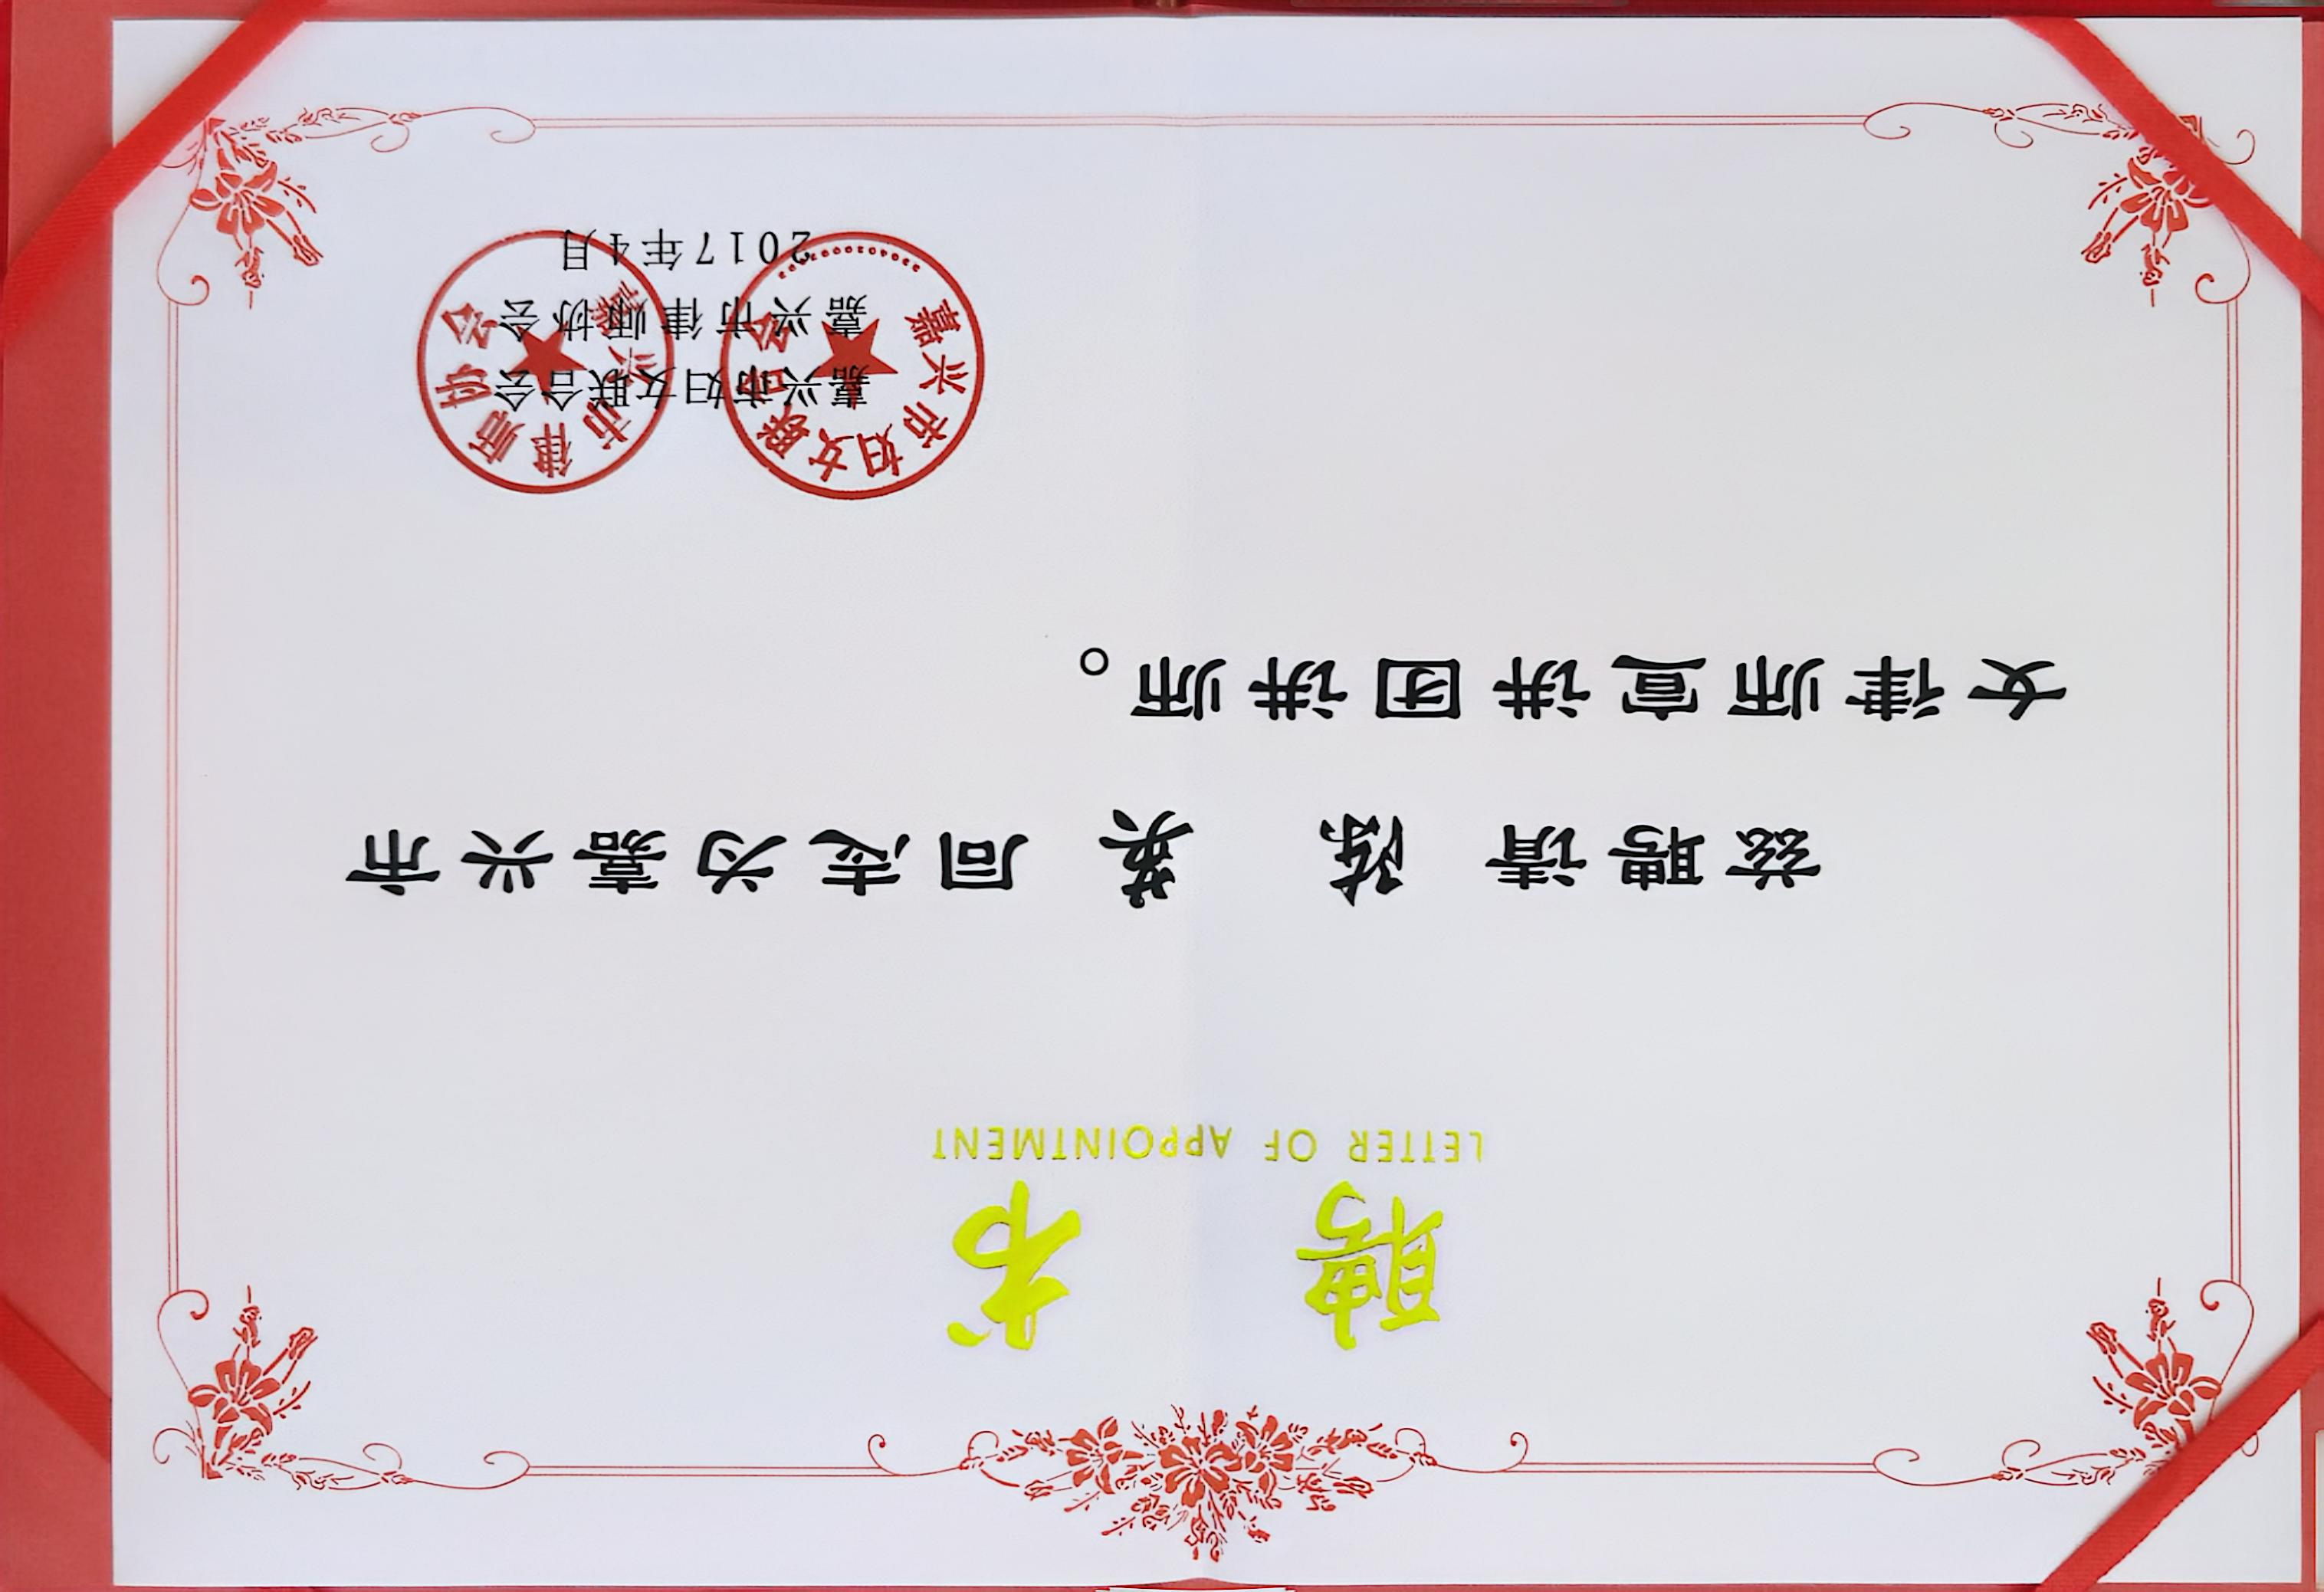 聘书
LETTER OF APPOINTMENT
兹聘请 陈 英 同志为嘉兴市
女律师宣讲团讲师。
嘉兴市妇女联合会
嘉兴市律师协会
2017年4月
嘉兴市妇女联合会
嘉兴市律师协会